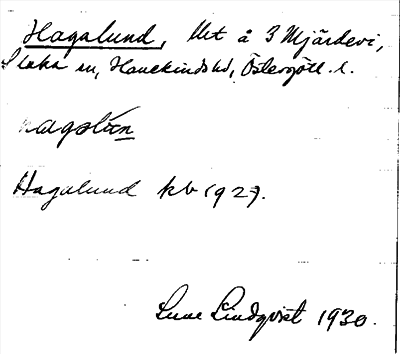 Hagalund, Ut å 3 Mjärdevi,
Slaka sn, Hanekinds hd, Östergötl. l.
Hagalund kb 1927.
Sune Lindqvist 1930.